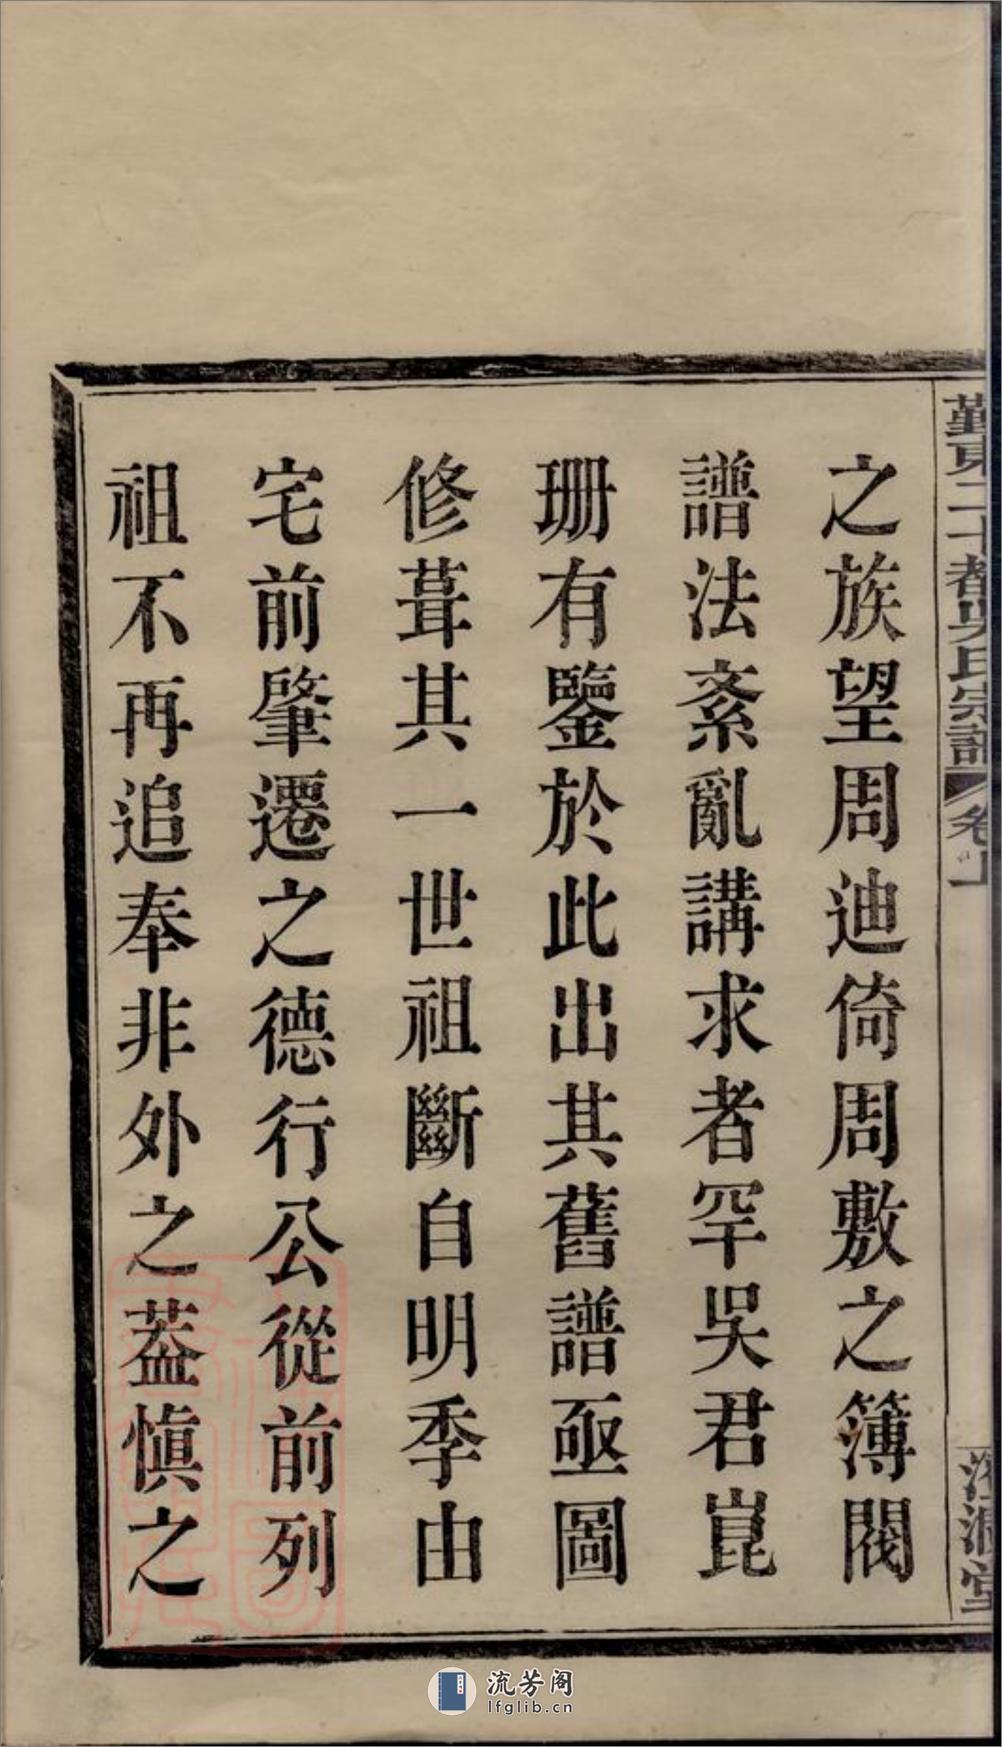 勤東二十都吳氏宗譜 卷上
之族望周迪倚周敷之簿閥
譜法紊亂講求者罕吳君崑
珊有鑒於此出其舊譜亟圖
修葺其一世祖斷自明季由
宅前肇遷之德行公從前列
祖不再追奉非外之葢慎之
流芳阁
lfglib.cn